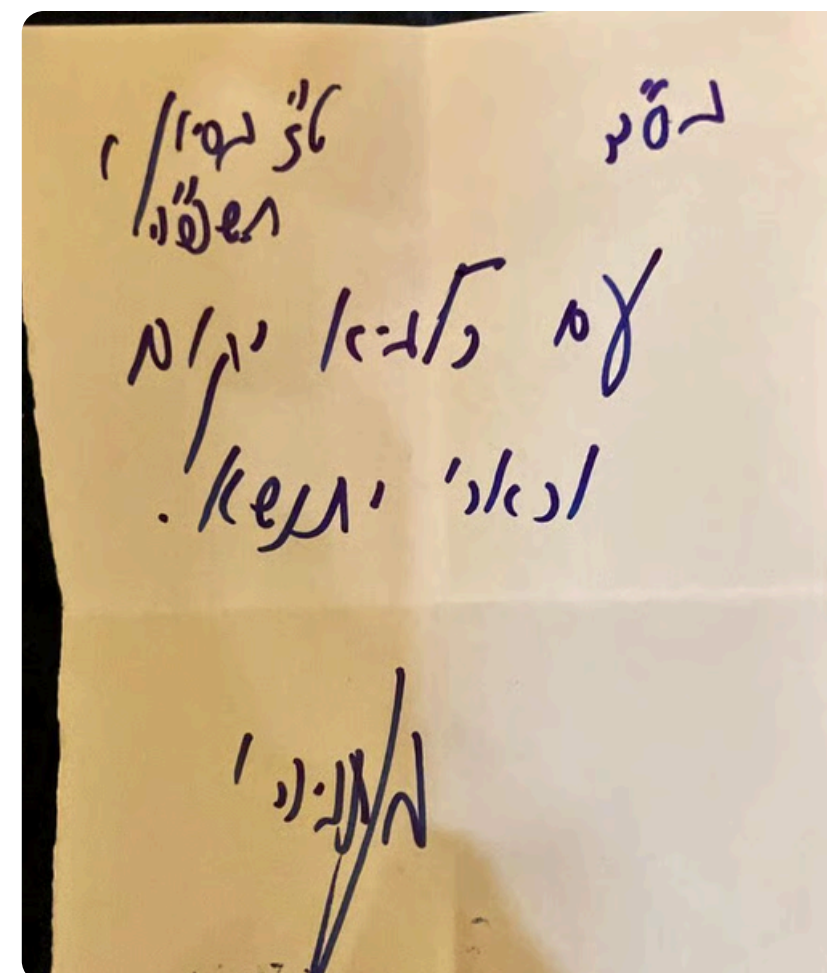 בס"ד ט"ז בסיון
תשפ"ה
עם כלביא יקום
וכארי יתנשא.
בנימין נ